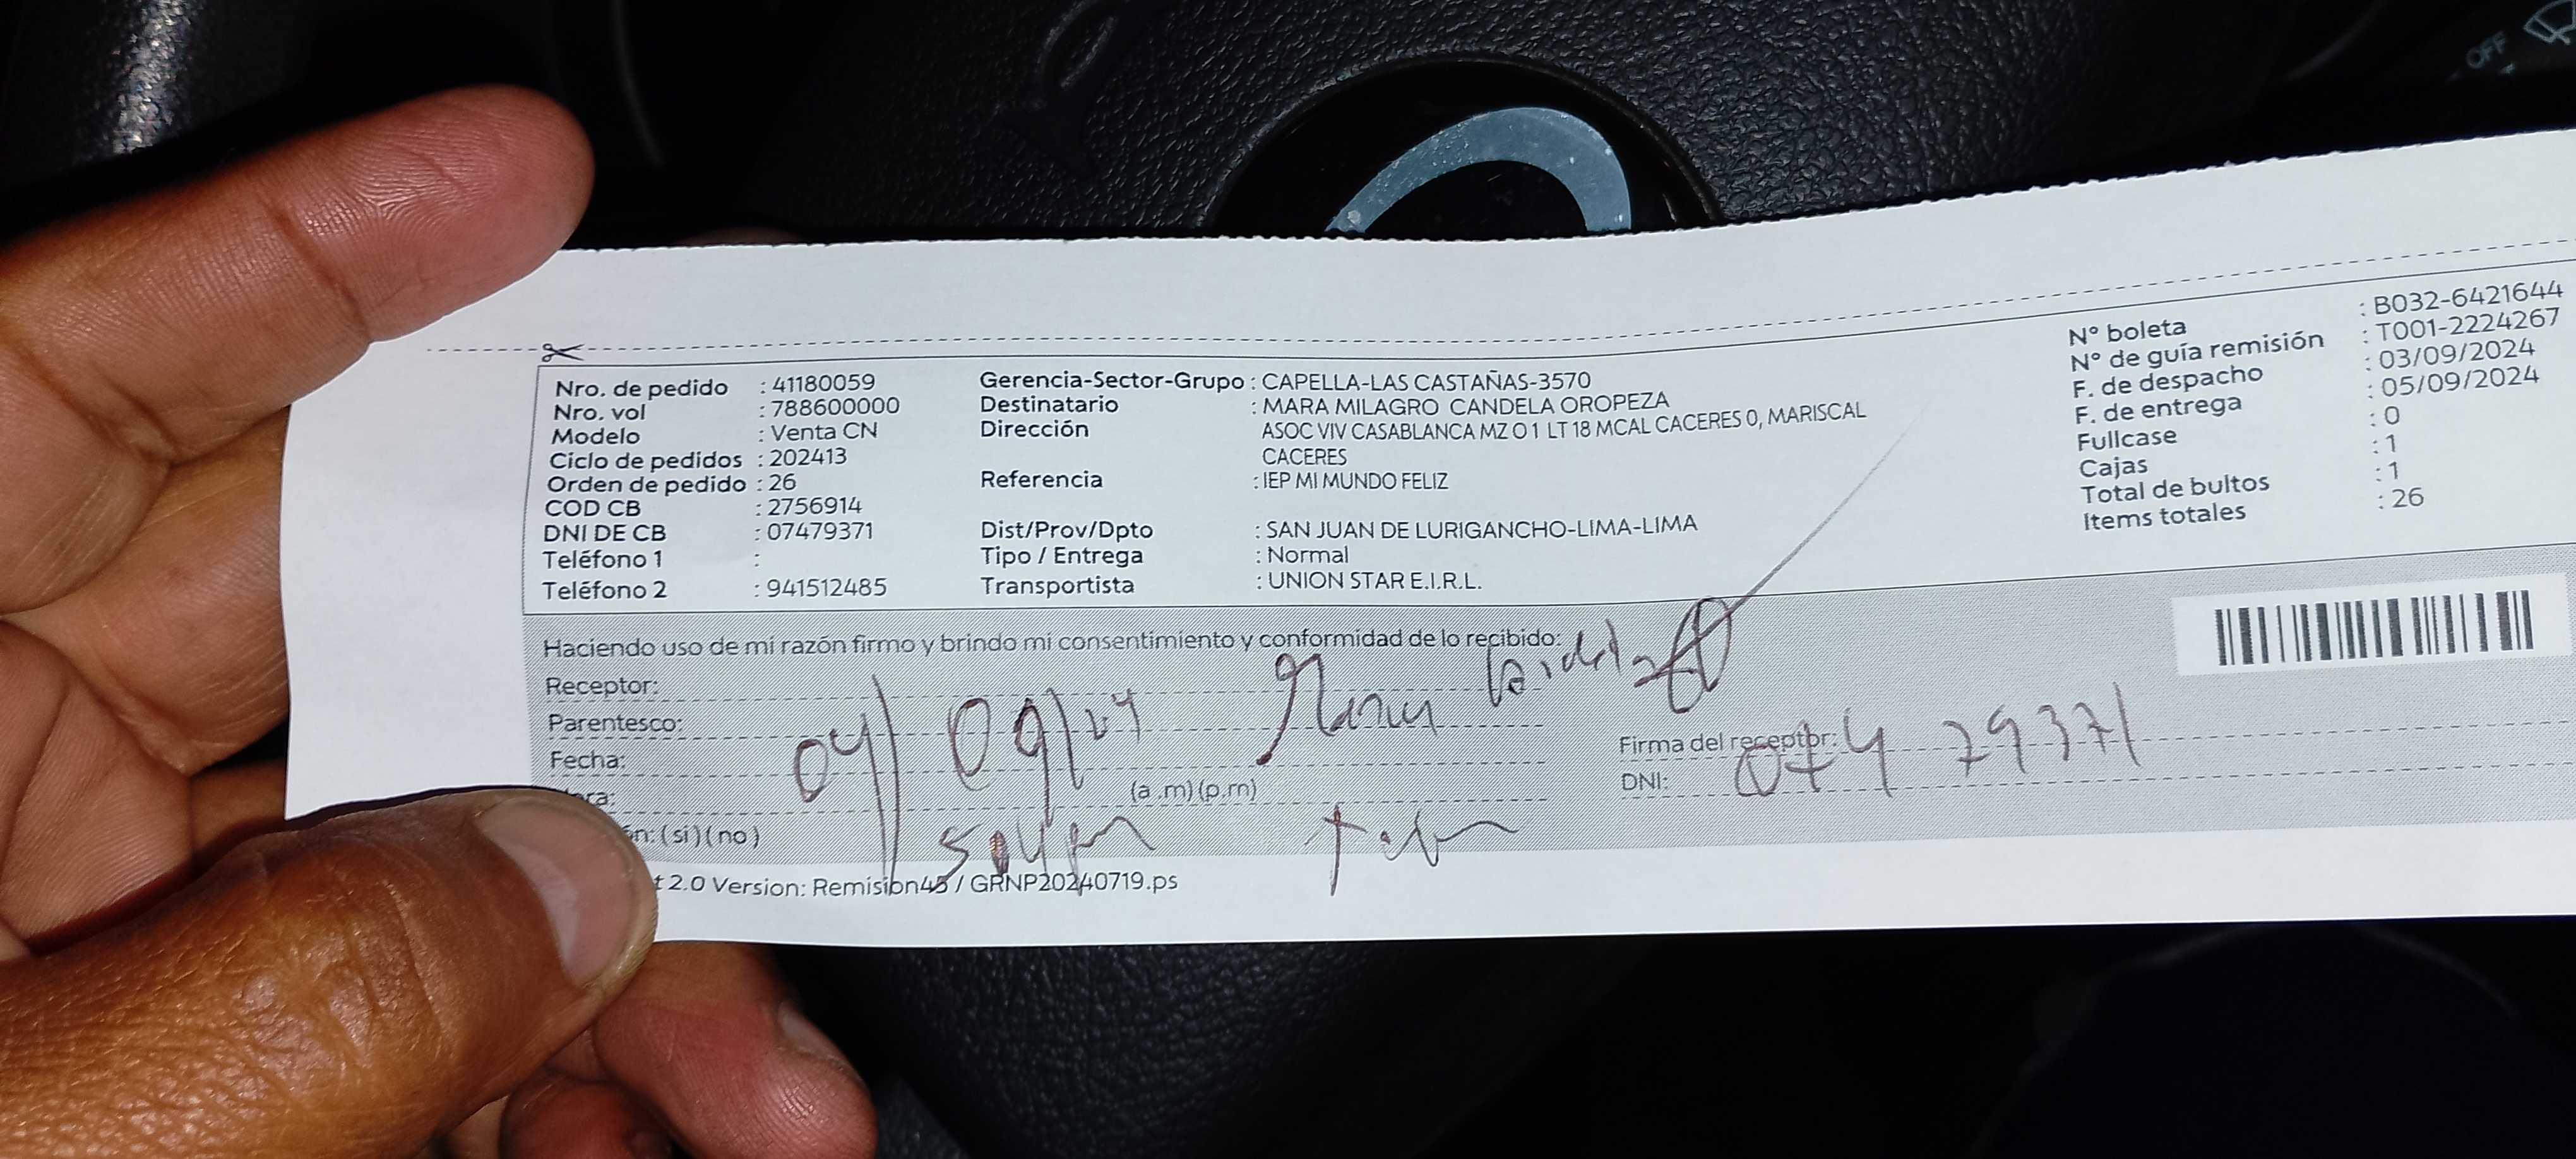 OFF
Nro. de pedido : 41180059
Nro. vol : 788600000
Modelo : Venta CN
Ciclo de pedidos : 202413
Orden de pedido : 26
COD CB : 2756914
DNI DE CB : 07479371
Teléfono 1 :
Teléfono 2 : 941512485
Gerencia-Sector-Grupo : CAPELLA-LAS CASTAÑAS-3570
Destinatario : MARA MILAGRO CANDELA OROPEZA
Dirección : ASOC VIV CASABLANCA MZ O 1 LT 18 MCAL CACERES 0, MARISCAL
CACERES
Referencia : IEP MI MUNDO FELIZ
Dist/Prov/Dpto : SAN JUAN DE LURIGANCHO-LIMA-LIMA
Tipo / Entrega : Normal
Transportista : UNION STAR E.I.R.L.
N° boleta : B032-6421644
N° de guía remisión : T001-2224267
F. de despacho : 03/09/2024
F. de entrega : 05/09/2024
Fullcase : 0
Cajas : 1
Total de bultos : 1
Items totales : 26
Haciendo uso de mi razón firmo y brindo mi consentimiento y conformidad de lo recibido:
Receptor:
Parentesco:
Fecha: 04/09/24
(a .m) (p.m)
(si) (no)
Firma del receptor:
DNI: 07479371
2.0 Version: Remision45 / GRNP20240719.ps